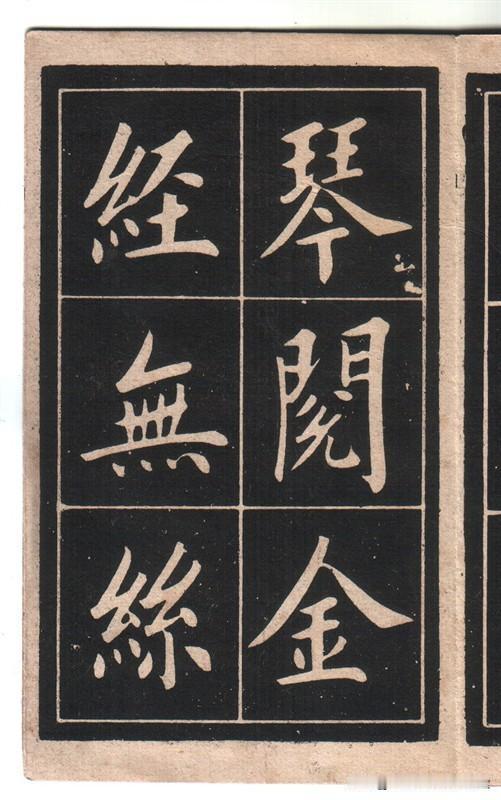 琴閱金
經無絲